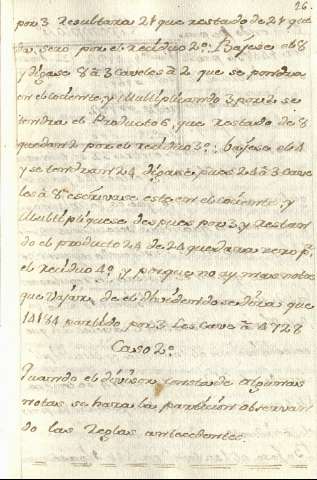 26.
por 3 Resultara 21 que restado de 21 que
da sero por el residuo 2º. Bajese el 8
y digase 8 à 3 caveles à 2 que se pondra
en el cociente, y Multiplicando 3 por 2 se
tendra el Producto 6, que restado de 8
quedan 2 por el residuo 3º: bajese el 4
y se tendran 24 digase, pues 24 à 3 cave
les à 8 escrivase este en el cociente, y
Multipliquese despues por 3 y Restan
do el producto 24 de 24 quedara cero pr.
el residuo 4º. y porque no ay mas notas
que vajar de el dividendo se dira que
14184 partido por 3 les cave à 4728
Caso 2º
Quando el divisor consta de algunas
notas se hara la particion observan
do las reglas antecedentes.